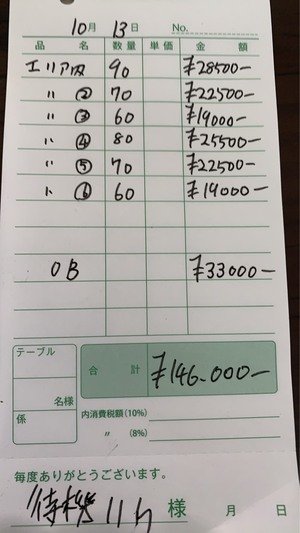 10月 13日 No.
品名 数量 単価 金額
エリア 90 ¥28500-
〃 ② 70 ¥22500-
〃 ③ 60 ¥19000-
〃 ④ 80 ¥25500-
〃 ⑤ 70 ¥22500-
〃 60 ¥19000-
OB ¥33000-
テーブル
名様
係
合計 ¥146.000-
内消費税額(10%)
〃 (8%)
毎度ありがとうございます。
待機 11h 様 月 日